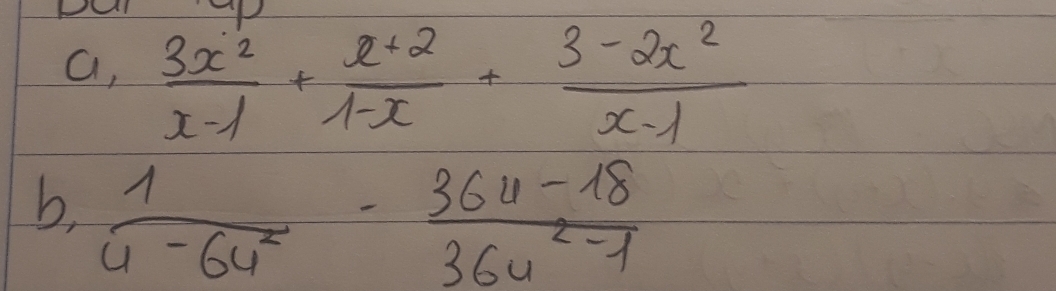 Bài tập
a, \frac{3x^2}{x-1} + \frac{x+2}{1-x} + \frac{3-2x^2}{x-1}
b, \frac{1}{u-6u^2} - \frac{36u-18}{36u^2-1}